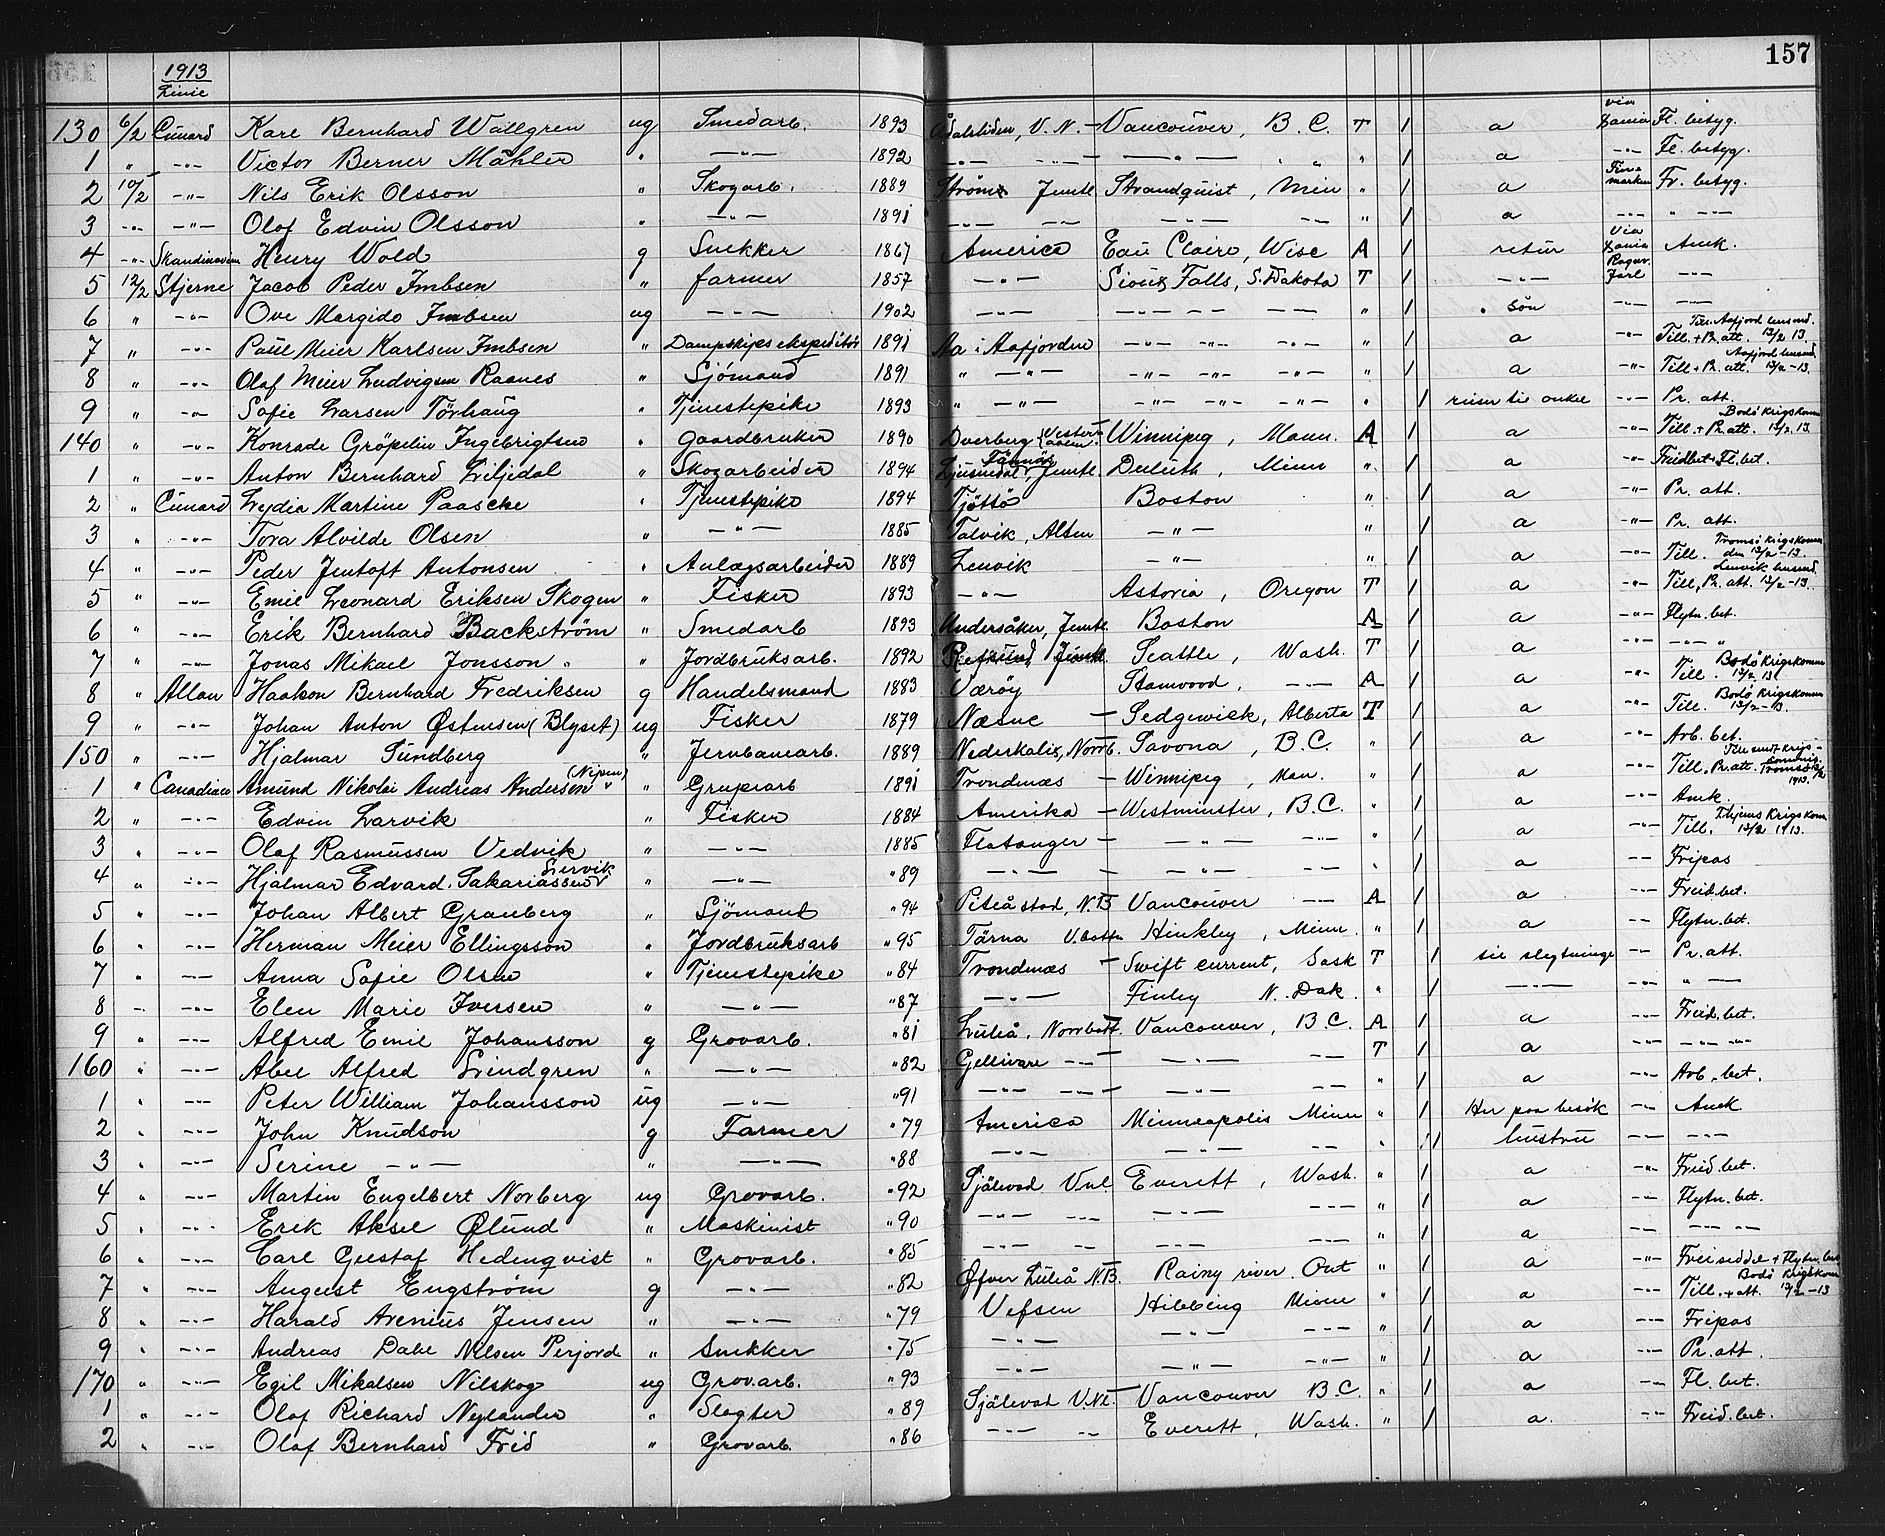 157
1913
Linie
130 6/2 Cunard Karl Bernhard Wallgren ug Smedarb. 1893 Ådalsliden, V. N. — Vancouver, B. C. T / a via Dania Fl. betyg.
1 " —"— Victor Berner Mähler " —"— 1892 —"— —"— —"— " " " / a —"— Fl. betyg.
2 10/2 —"— Nils Erik Olsson " Skogarb. 1889 Ströms Jemtl. Strandquist, Min " / a Finmarken Fr. betyg.
3 —"— —"— Olof Edvin Olsson " —"— 1891 —"— —"— —"— —"— " / a —"— " —"—
4 —"— Skandinavien Henry Wold g Snekker 1867 America Eau Claire, Wisc A / retur Via Dania Amk.
5 12/2 Stjerne Jacob Peder Imbsen " farmer 1857 —"— Sioux Falls, S. Dakota T / —"— Ragnv. Jarl —"—
6 " —"— Ove Margido Imbsen ug —"— 1902 —"— —"— —"— " / " sön —"— —"—
7 " —"— Paul Meier Karlsen Imbsen " Dampskipsekspeditör 1891 Aa i Aafjorden —"— —"— —"— " / a —"— Till. + Pr. att. Aafjord lensmd. 12/2 13.
8 " —"— Olaf Meier Ludvigsen Raanes " Sjömand 1891 " —"— —"— —"— —"— " / a —"— Till + Pr. att. Aafjord lensmd. 12/2-13.
9 " —"— Sofie Larsen Törhaug " Tjenestepike 1893 " —"— —"— —"— —"— " / reiser til onkel —"— Pr. att.
140 " —"— Konrade Gröpelin Ingebrigtsen " Gaardbruker 1890 Dverberg, Vesteraalen Winnipeg, Mann. A / a —"— Till. + Pr. att. Bodö Krigskomm 12/2 13.
1 " —"— Anton Bernhard Liljedal " Skogarbeider 1894 Ljusnedal, Tännäs Jemtl. Duluth, Minn " / a —"— Freidbet + Fl. bet.
2 " Cunard Lydia Martine Paasche " Tjenestepike 1894 Tjöttö Boston " / a —"— Pr. att.
3 " —"— Tora Alvilde Olsen " —"— 1885 Talvik, Alten —"— " / a —"— Pr. att.
4 " —"— Peder Jentoft Antonsen " Anlægsarbeider 1889 Lenvik —"— " / a —"— Till. Tromsö Krigskomm den 12/2-13.
5 " —"— Emil Leonard Eriksen Skogen " Fisker 1893 —"— Astoria, Oregon T / a —"— Till, Pr. att. Lenvik lensmd. 12/2-13.
6 " —"— Erik Bernhard Backström " Smedarb 1893 Undersåker, Jemtl Boston A / a —"— Flytn. bet.
7 " —"— Jonas Mikael Jonsson " " Jordbruksarb. 1892 Refsund, Jämtl. Seattle, Wash. T / a —"— —"— "
8 " Allan Haakon Bernhard Fredriksen g Handelsmand 1883 Værøy Stanwood, —"— A / a —"— Till. Bodö Krigskomm 12/2 13.
9 " —"— Johan Anton Østensen (Blyset) ug Fisker 1879 Næsne — Sedgewick, Alberta T / a —"— Till. Bodö Krigskomm 12/2-13.
150 " —"— Hjalmar Sundberg " Jernbanearb. 1889 Nederkalix, Norrb. Savona, B.C. " / a —"— Arb. bet.
1 " Canadian Amund Nikolai Andreas Andersen (Nipen) " Grupearb 1891 Trondenæs — Winnipeg, Man. " / a —"— Till. Pr. att. Tromsö 1913.
2 " —"— Edvin Larvik " Fisker 1884 Amerika — Westminster, B.C. " / a —"— Amk.
3 " —"— Olaf Rasmussen Vedvik " —"— 1885 Flatanger — —"— —"— " / a —"— Till. Thjems Krigskom 12/2 1913.
4 " —"— Hjalmar Edvard Sakariassen Lervik " —"— "89 —"— —"— —"— " / a —"— Fripas
5 " —"— Johan Albert Granberg " Sjömand "94 Piteå stad, N.B Vancouver —"— A / a —"— Freid.bet.
6 " —"— Herman Meier Ellingsson " Jordbruksarb "95 Tärna V.bottn Hinkley, Minn. " / a —"— Flytn. bet.
7 " —"— Anna Sofie Olsen " Tjenestepike "84 Trondenæs — Swift Current, Sask T / til slegtninge —"— Pr. att.
8 " —"— Elen Marie Iversen " —"— "87 —"— Finley N. Dak. " / —"— —"— " —"—
9 " —"— Alfred Emil Johansson g Grovarb. "81 Luleå, Norrbott. Vancouver, B.C. A / a —"— Freid. bet.
160 " —"— Abel Alfred Lindgren " —"— "82 Gellivare —"— —"— —"— T / a —"— —"— —"—
1 " —"— Peter William Johansson ug —"— "91 —"— —"— —"— —"— " / a —"— Arb. bet.
2 " —"— John Knudson g Farmer "79 America Minneapolis Minn " / Her paa besök —"— Amk
3 " —"— Serine —"— " —"— "88 —"— —"— —"— " / hustru —"— —"—
4 " —"— Martin Engelbert Norberg ug Grovarb. "92 Själevad Vnl. Everett, Wash. " / a —"— Freid. bet.
5 " —"— Erik Aksel Ølund " Maskinist "90 —"— —"— —"— —"— " / a —"— Flytn. bet.
6 " —"— Carl Gustaf Hedenqvist " Grovarb. "85 —"— —"— —"— " / a —"— —"— —"—
7 " —"— August Engström g —"— "82 Øfver Luleå N.B. Rainy river. Ont " / a —"— Freiseddel + Flytn. bet
8 " —"— Harald Arenius Jensen " —"— "79 Vefsen Hibbing Minn " / a —"— Till. + att. Bodö Krigskom 12/2-13
9 " —"— Andreas Dahl Nilsen Perjord " Snekker "75 —"— —"— —"— " / a —"— Fripas
170 " —"— Egil Mikalsen Nilskog ug Grov.arb. "93 —"— —"— —"— " / a —"— Pr. att.
1 " —"— Olof Richard Nylander " Slagter "89 Själevad V.Nl. — Vancouver B.C. " / a —"— Fl. bet.
2 " —"— Olof Bernhard Frid " Grovarb. "86 —"— —"— Everett, Wash. " / a. —"— Freid. bet.